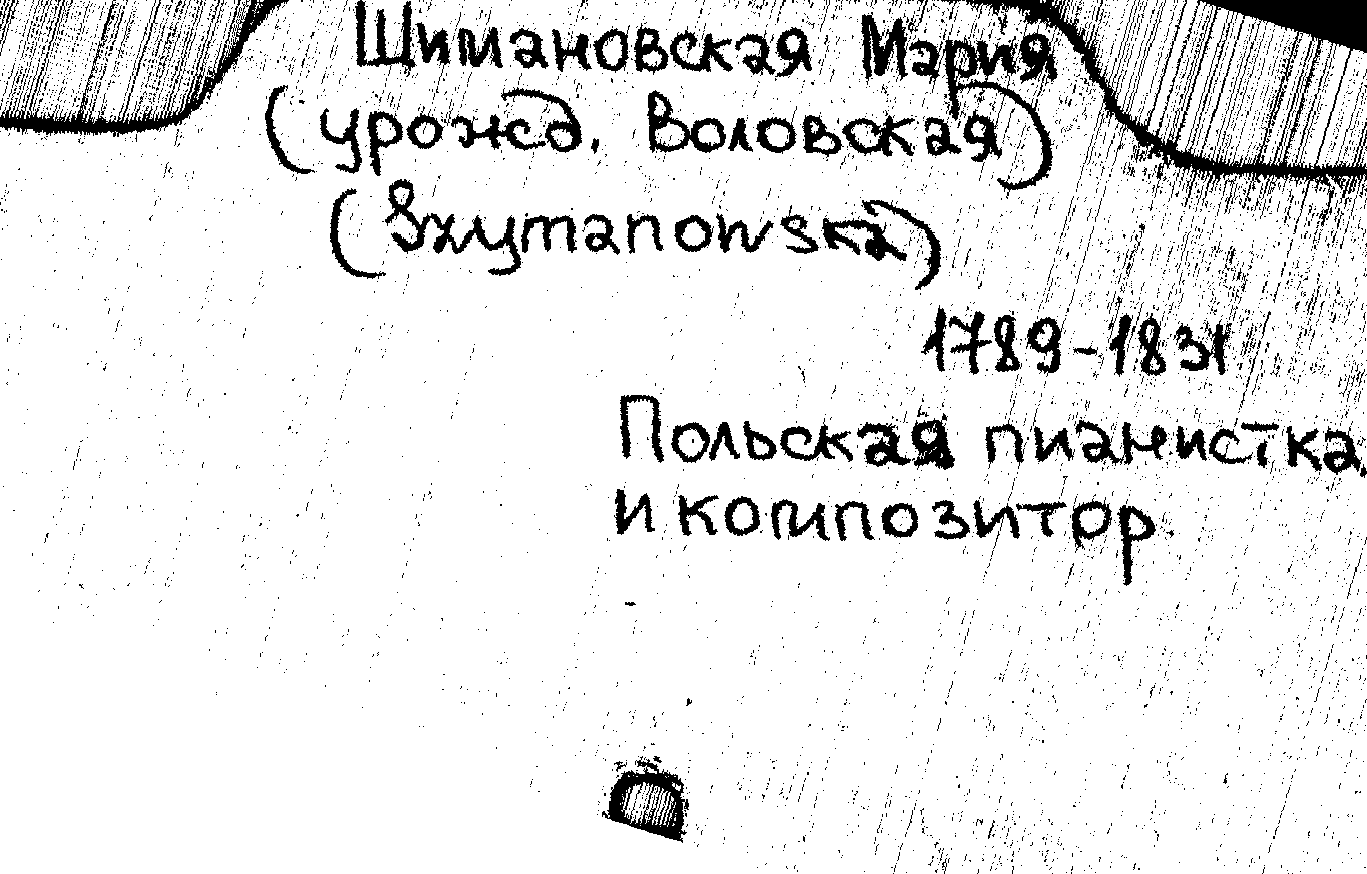 Шимановская Мария
(урожд. Воловская)
(Sxymanowska)
1789-1831
Польская пианистка
и композитор